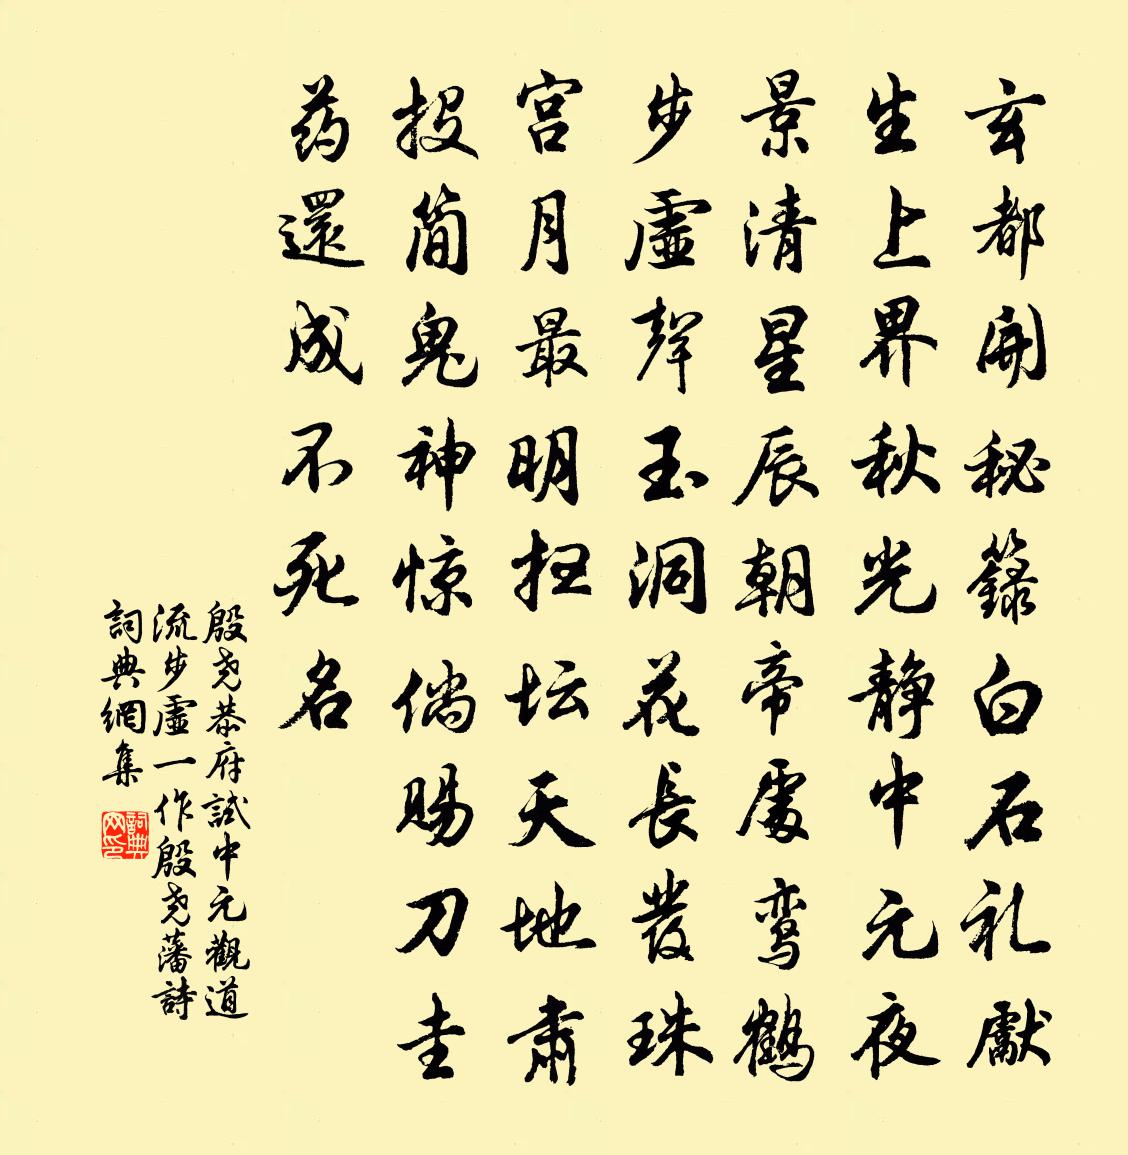 玄都開秘籙白石礼獻
生上界秋光静中元夜
景清星辰朝帝處鸾鶴
步虛聲玉洞花長發珠
宫月最明扫坛天地肅
投简鬼神惊倘赐刀圭
药還成不死名
殷尧恭府試中元觀道
流步虛一作殷尧藩詩
詞典網集
詞典网印